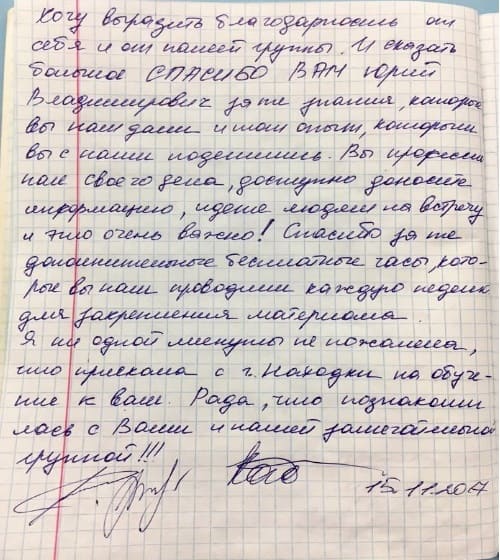 Хочу выразить благодарность от
себя и от нашей группы. И сказать
большое СПАСИБО ВАМ Юрий
Владимирович за те знания, которые
вы нам дали и тот опыт, которым
вы с нами поделились. Вы професси
нал своего дела, доступно доносите
информацию, идете людям на встречу
и это очень важно! Спасибо за те
дополнительные бесплатные часы, кото-
рые вы нам проводили каждую неделю
для закрепления материала.
Я ни одной минуты не пожалела,
что приехала с г. Находки на обуче-
ние к вам. Рада, что познакоми
лась с Вами и нашей замечательной
группой!!!
15.11.2017